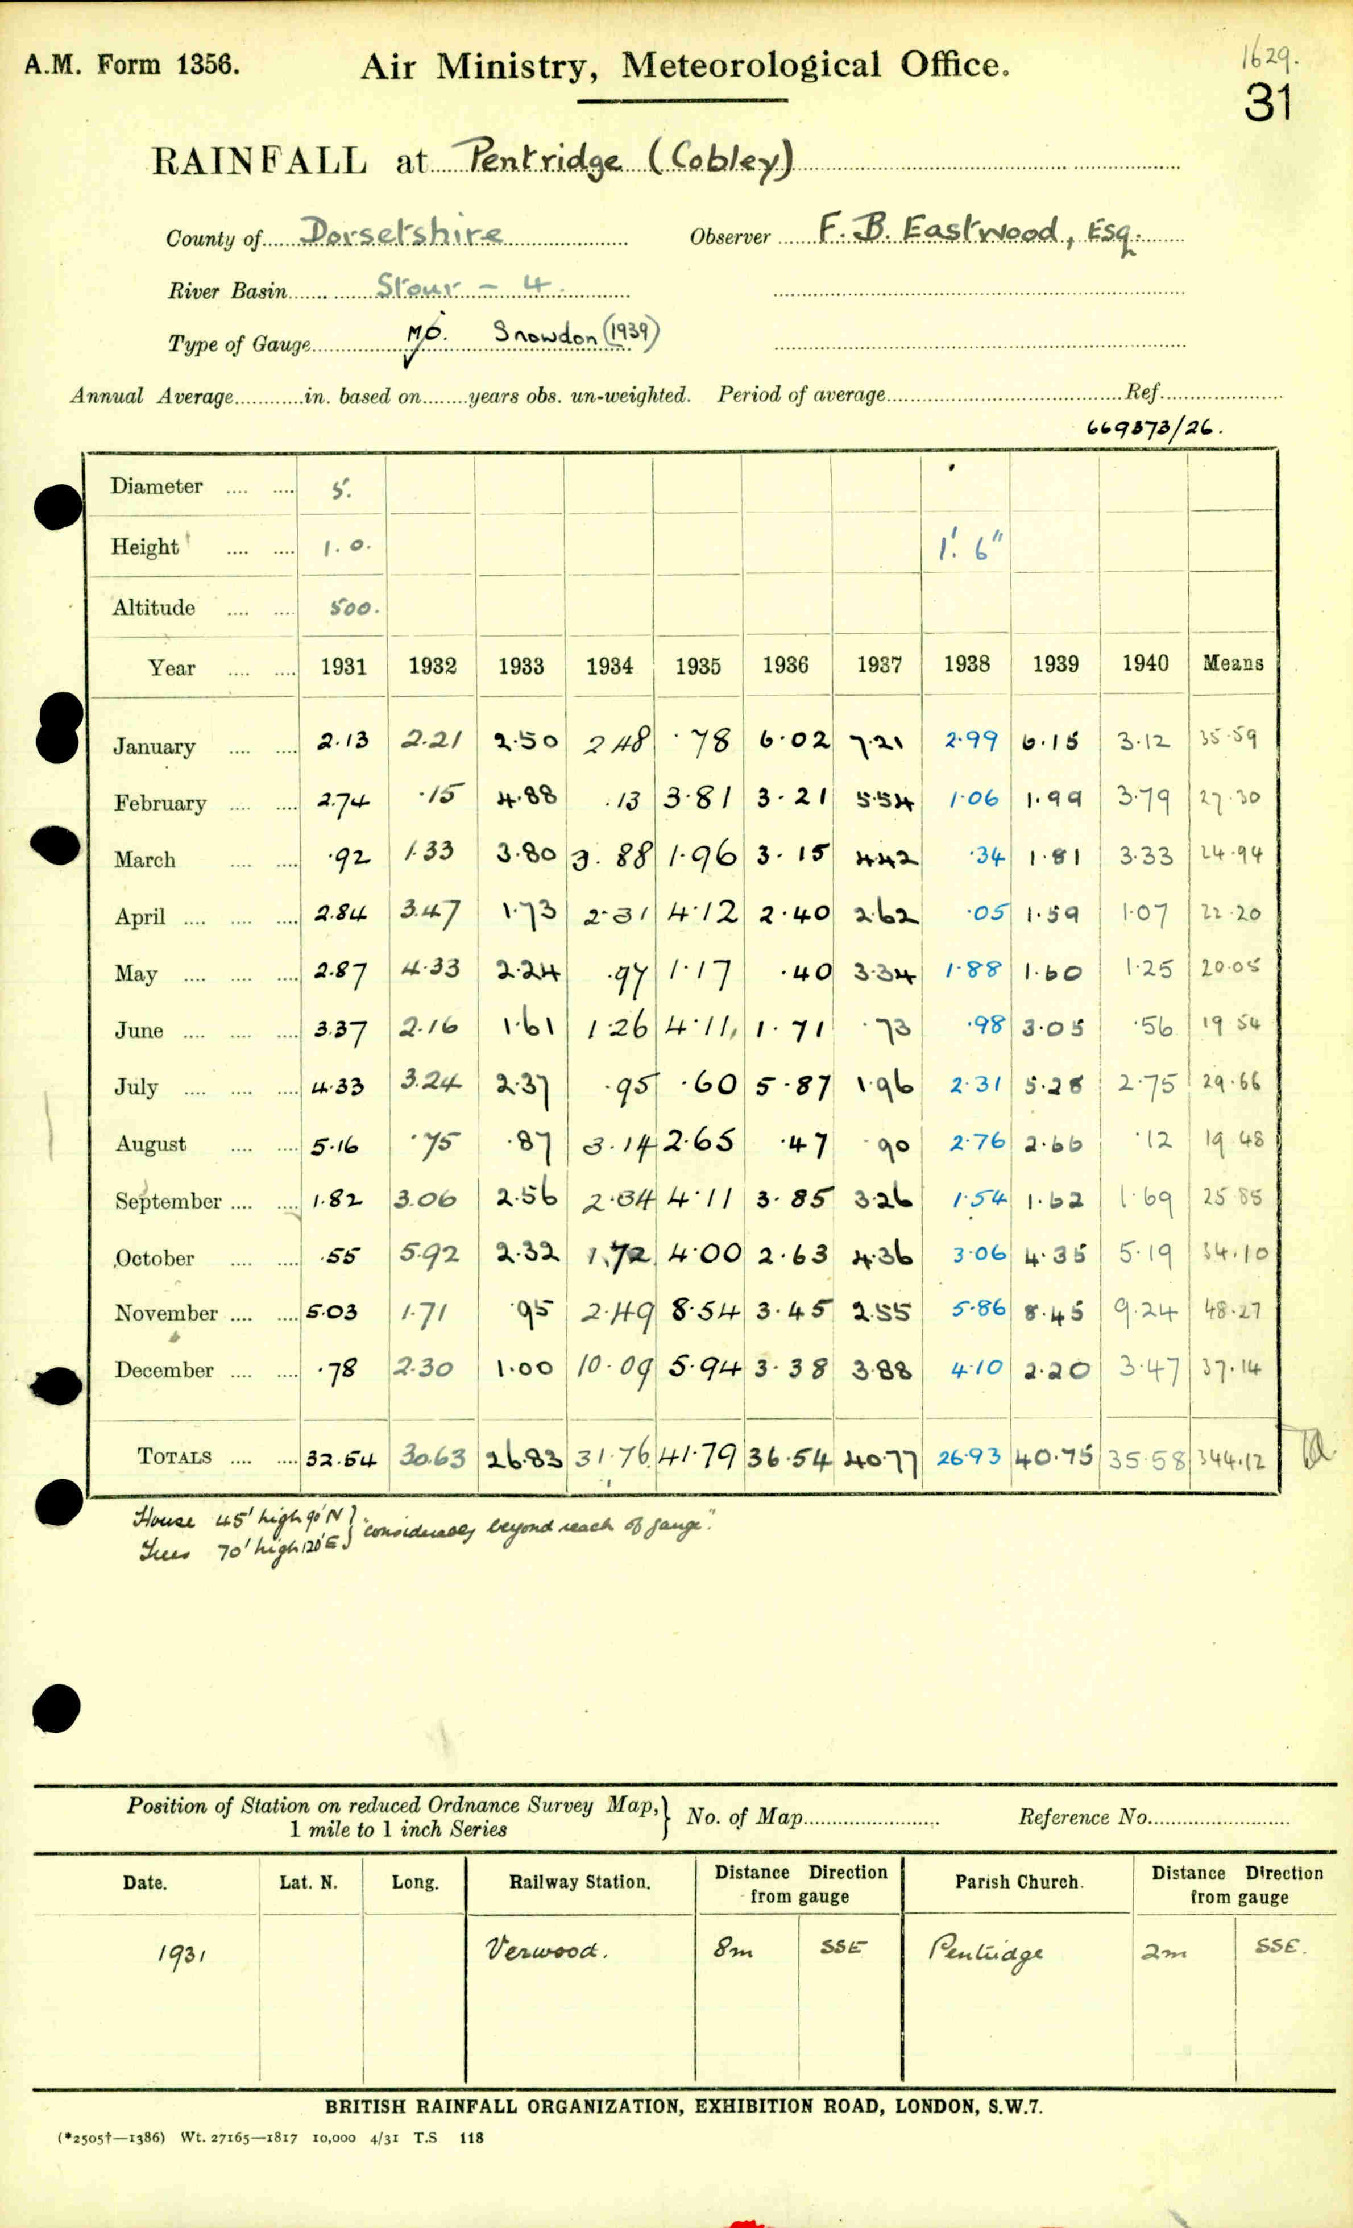 1629.
A.M. Form 1356. Air Ministry, Meteorological Office.
31
RAINFALL at Pentridge (Cobley)
County of Dorsetshire Observer F. B. Eastwood, Esq.
River Basin Stour - 4.
Type of Gauge M.O. Snowdon (1939)
Annual Average in. based on years obs. un-weighted. Period of average Ref.
669373/26.
Diameter 5.
Height 1.0. 1'. 6"
Altitude 500.
Year 1931 1932 1933 1934 1935 1936 1937 1938 1939 1940 Means
January 2.13 2.21 2.50 2.48 .78 6.02 7.21 2.99 6.15 3.12 35.59
February 2.74 .15 4.88 .13 3.81 3.21 5.54 1.06 1.99 3.79 27.30
March .92 1.33 3.80 3.88 1.96 3.15 4.42 .34 1.81 3.33 24.94
April 2.84 3.47 1.73 2.31 4.12 2.40 2.62 .05 1.59 1.07 22.20
May 2.87 4.33 2.24 .97 1.17 .40 3.34 1.88 1.60 1.25 20.05
June 3.37 2.16 1.61 1.26 4.11 1.71 .73 .98 3.05 .56 19.54
July 4.33 3.24 2.37 .95 .60 5.87 1.96 2.31 5.28 2.75 29.66
August 5.16 .75 .87 3.14 2.65 .47 .90 2.76 2.66 .12 19.48
September 1.82 3.06 2.56 2.34 4.11 3.85 3.26 1.54 1.62 1.69 25.85
October .55 5.92 2.32 1.72 4.00 2.63 4.36 3.06 4.35 5.19 34.10
November 5.03 1.71 .95 2.49 8.54 3.45 2.55 5.86 8.45 9.24 48.27
December .78 2.30 1.00 10.09 5.94 3.38 3.88 4.10 2.20 3.47 37.14
TOTALS 32.54 30.63 26.83 31.76 41.79 36.54 40.77 26.93 40.75 35.58 344.12
House 45' high 90' N } "considerably beyond reach of gauge".
Trees 70' high 120' E
Position of Station on reduced Ordnance Survey Map, } No. of Map Reference No.
1 mile to 1 inch Series
Date. Lat. N. Long. Railway Station. Distance Direction from gauge Parish Church. Distance Direction from gauge
1931 Verwood. 8m SSE Pentridge 2m SSE.
BRITISH RAINFALL ORGANIZATION, EXHIBITION ROAD, LONDON, S.W.7.
(*2505†—1386) Wt. 27165—1817 10,000 4/31 T.S 118